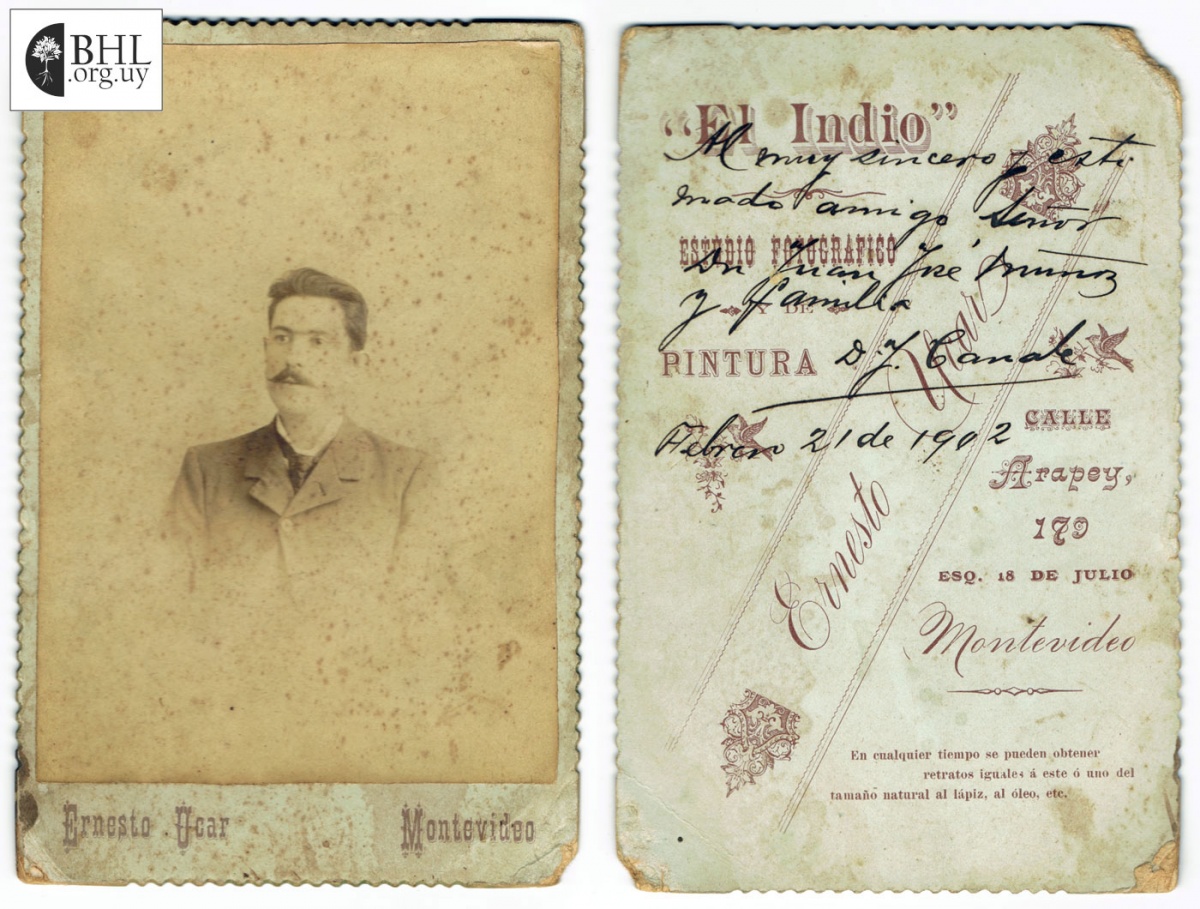 BHL
.org.uy
Ernesto Ucar
Montevideo
"El Indio"
Al muy sincero y esti-
mado amigo Señor
ESTUDIO FOTOGRAFICO
Dn Juan José Muñoz
y familia
Y DE
PINTURA
D. J. Canale
Febrero 21 de 1902
Ernesto Ucar
CALLE
Arapey,
179
ESQ. 18 DE JULIO
Montevideo
En cualquier tiempo se pueden obtener
retratos iguales á este ó uno del
tamaño natural al lápiz, al óleo, etc.